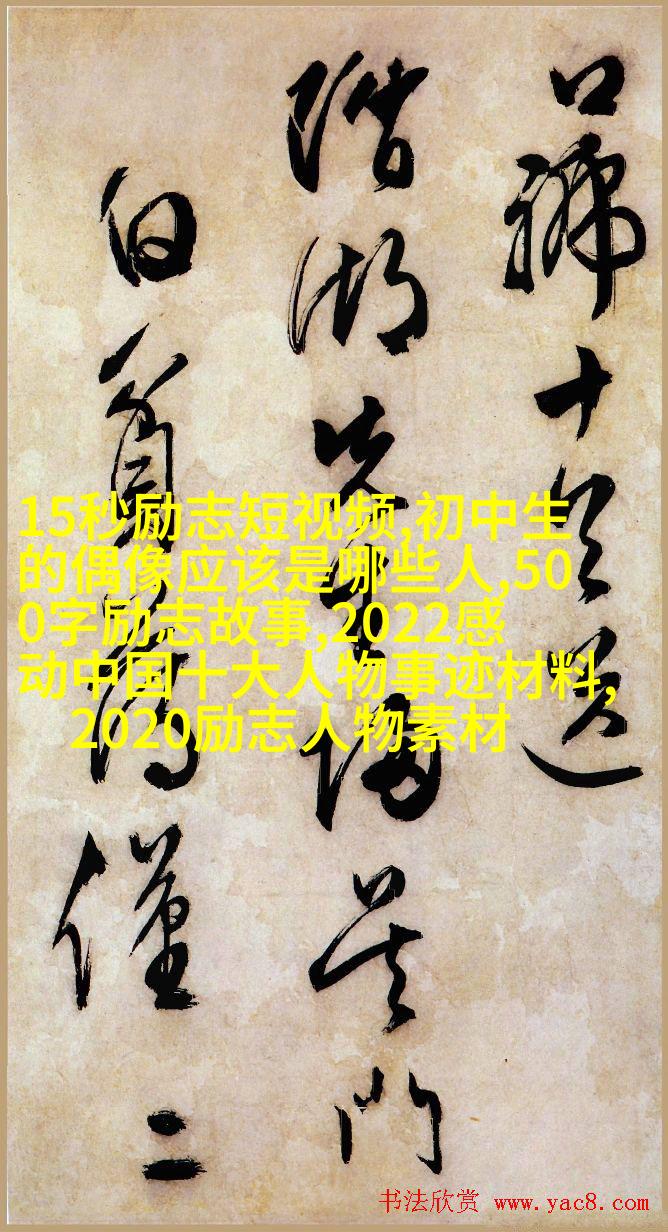 口號十送
階湖先生歸吳門
僅二
15秒励志短视频,初中生
的偶像应该是哪些人,50
0字励志故事,2022感
动中国十大人物事迹材料,
2020励志人物素材
书法欣赏 www.yac8.com